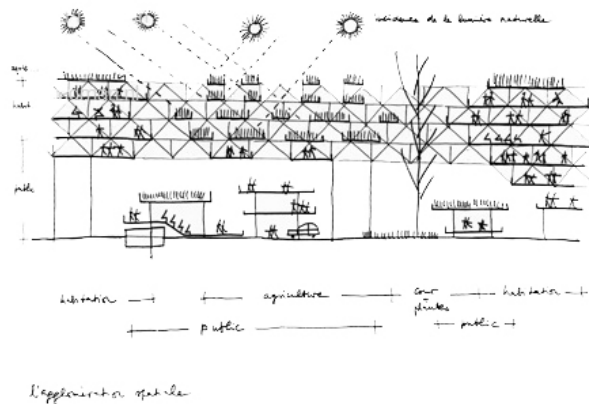 incidences de la lumière naturelle
habit
public
habitation agriculture cour habitation
plantes
public public
l'agglomération spatiale